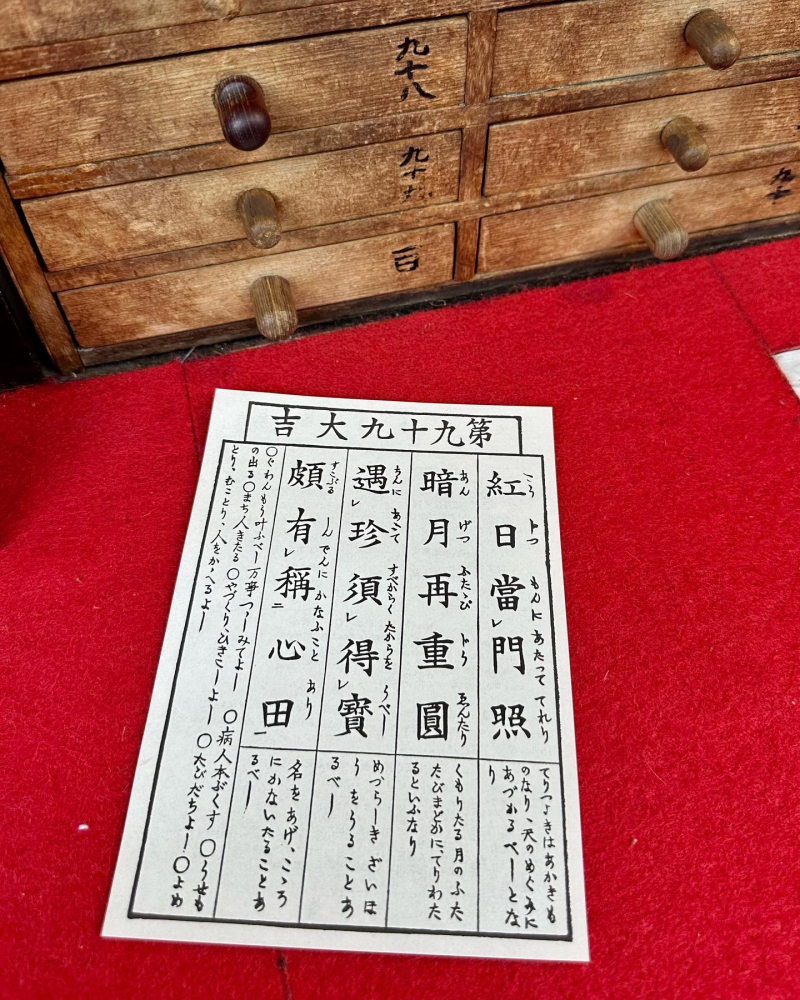 九十八
九十九
一百
第九十九大吉
紅日當門照
暗月再重圓
遇珍須得寶
頗有稱心田
こう
もんに あたって てれり
あん げつ ふたゝび
ゑんたり
すべからく たからを うべし
すこぶる
しんでんに かなふこと あり
てりつよきはあかきも
のなり、天のめぐみに
あづかるべしとな
り
くもりたる月のふた
たびまどかに、てりわた
るといふなり
めづらしき ざいほ
うをうることあ
るべし
名をあげ、こゝろ
にかないたることあ
るべし
〇ぐわんもう叶ふべし 万事つゝしみてよし 〇病人本ぶくす 〇うせも
の出る 〇まち人きたる 〇やづくり、ひきこしよし 〇たびだちよし 〇よめ
とり、むことり、人をかゝへるよし